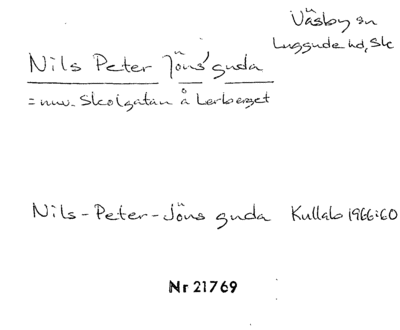 Väsby sn
Luggude hd, Sk
Nils Peter Jöns' guda
= nuv. Skolgatan å Lerberget
Nils-Peter-Jöns guda Kullabo 1966:60
Nr 21769